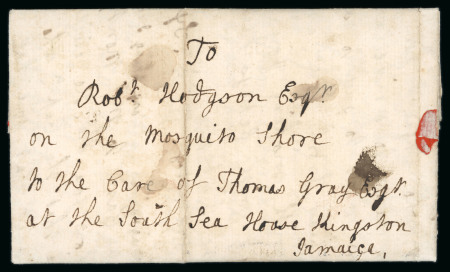 To
Robt. Hodgson Esqr.
on the Mosquito Shore
to the Care of Thomas Gray Esqr.
at the South Sea House Kingston
Jamaica.